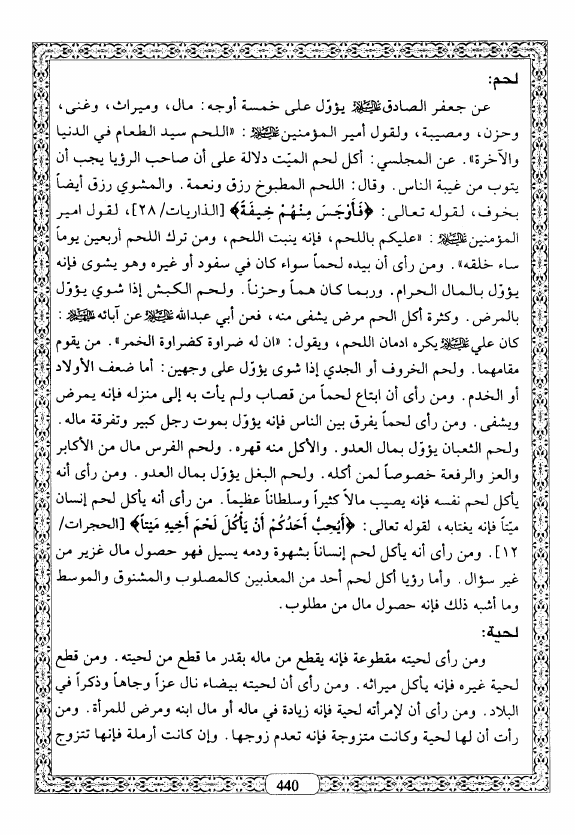 لحم:
عن جعفر الصادق عليه السلام يؤوّل على خمسة أوجه: مال، وميراث، وغنى،
وحزن، ومصيبة، ولقول أمير المؤمنين عليه السلام: «اللحم سيد الطعام في الدنيا
والآخرة». عن المجلسي: أكل لحم الميّت دلالة على أن صاحب الرؤيا يجب أن
يتوب من غيبة الناس. وقال: اللحم المطبوخ رزق ونعمة. والمشوي رزق أيضاً
بخوف، لقوله تعالى: ﴿فَأَوْجَسَ مِنْهُمْ خِيفَةً﴾ [الذاريات/ ٢٨]، لقول امير
المؤمنين عليه السلام: «عليكم باللحم، فإنه ينبت اللحم، ومن ترك اللحم أربعين يوماً
ساء خلقه». ومن رأى أن بيده لحماً سواء كان في سفود أو غيره وهو يشوى فإنه
يؤوّل بالمال الحرام. وربما كان هماً وحزناً. ولحم الكبش إذا شوي يؤوّل
بالمرض. وكثرة أكل الحم مرض يشفى منه، فعن أبي عبدالله عليه السلام عن آبائه عليهم السلام:
كان علي عليه السلام يكره ادمان اللحم، ويقول: «ان له ضراوة كضراوة الخمر». من يقوم
مقامهما. ولحم الخروف أو الجدي إذا شوى يؤوّل على وجهين: أما ضعف الأولاد
أو الخدم. ومن رأى أن ابتاع لحماً من قصاب ولم يأت به إلى منزله فإنه يمرض
ويشفى. ومن رأى لحماً يفرق بين الناس فإنه يؤوّل بموت رجل كبير وتفرقة ماله.
ولحم الثعبان يؤوّل بمال العدو. والأكل منه قهره. ولحم الفرس مال من الأكابر
والعز والرفعة خصوصاً لمن أكله. ولحم البغل يؤوّل بمال العدو. ومن رأى أنه
يأكل لحم نفسه فإنه يصيب مالاً كثيراً وسلطاناً عظيماً. من رأى أنه يأكل لحم إنسان
ميّتاً فإنه يغتابه، لقوله تعالى: ﴿أَيُحِبُّ أَحَدُكُمْ أَنْ يَأْكُلَ لَحْمَ أَخِيهِ مَيْتاً﴾ [الحجرات/
١٢]. ومن رأى أنه يأكل لحم إنساناً بشهوة ودمه يسيل فهو حصول مال غزير من
غير سؤال. وأما رؤيا أكل لحم أحد من المعذبين كالمصلوب والمشنوق والموسط
وما أشبه ذلك فإنه حصول مال من مطلوب.
لحية:
ومن رأى لحيته مقطوعة فإنه يقطع من ماله بقدر ما قطع من لحيته. ومن قطع
لحية غيره فإنه يأكل ميراثه. ومن رأى أن لحيته بيضاء نال عزاً وجاهاً وذكراً في
البلاد. ومن رأى أن لإمرأته لحية فإنه زيادة في ماله أو مال ابنه ومرض للمرأة. ومن
رأت أن لها لحية وكانت متزوجة فإنه تعدم زوجها. وإن كانت أرملة فإنها تتزوج
440